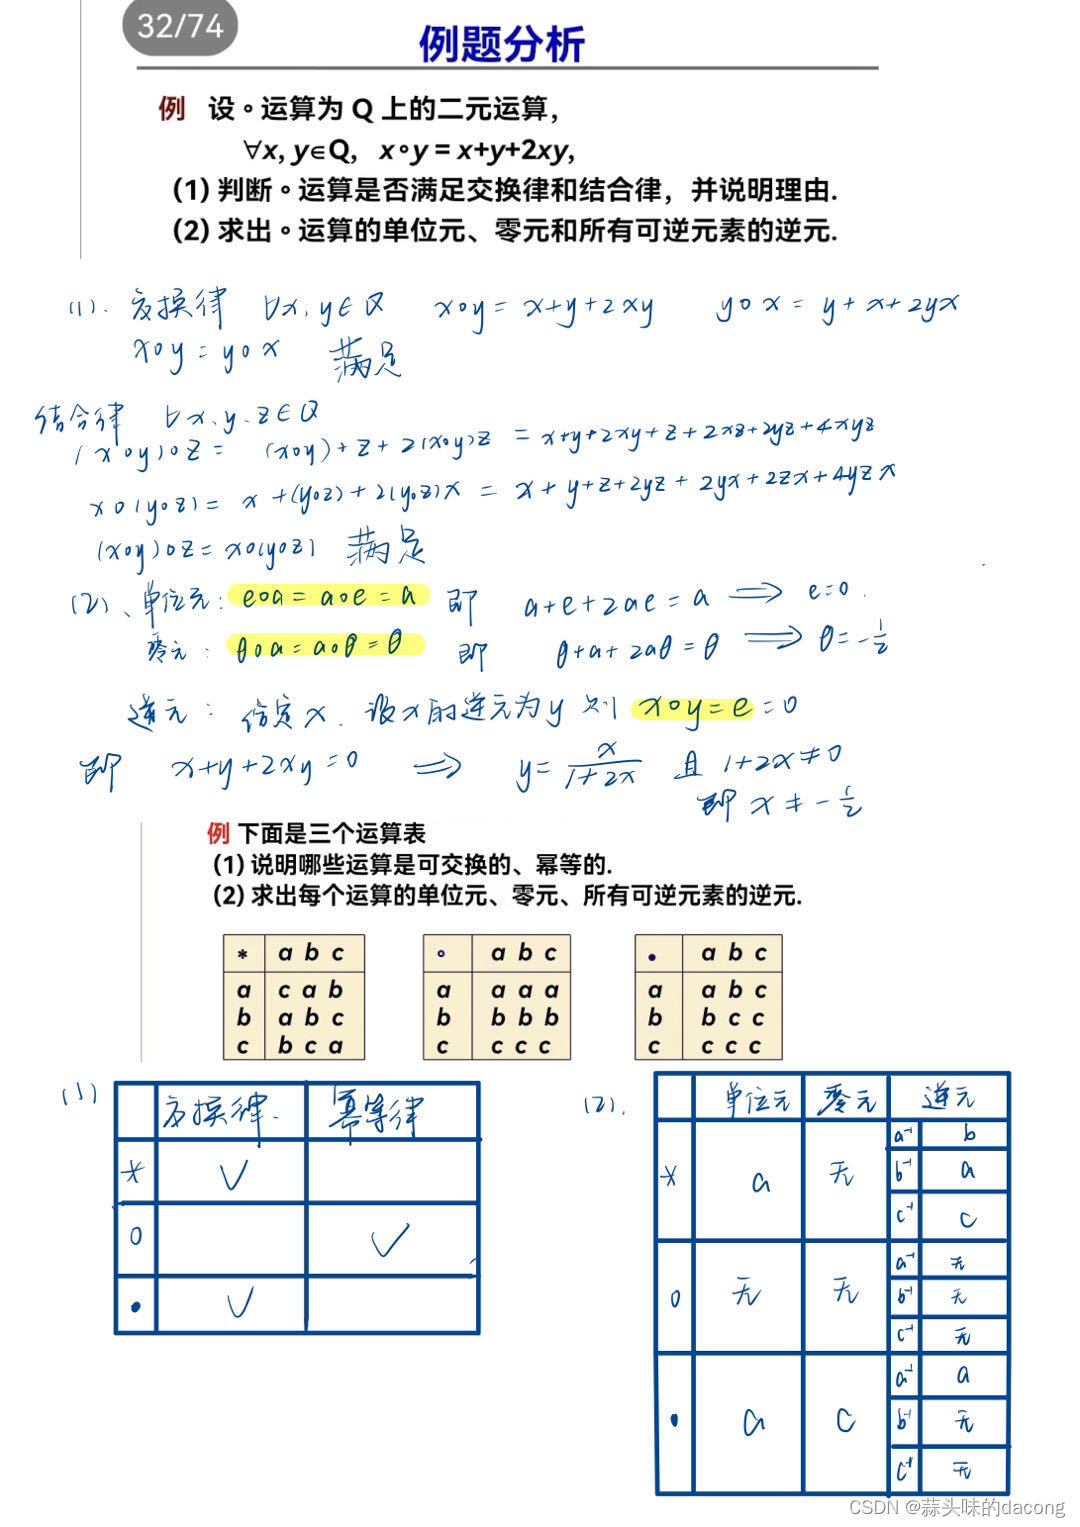 32/74
例题分析
例 设∘运算为 Q 上的二元运算,
∀x, y∈Q, x∘y = x+y+2xy,
(1) 判断∘运算是否满足交换律和结合律，并说明理由.
(2) 求出∘运算的单位元、零元和所有可逆元素的逆元.
(1). 交换律 ∀x, y∈Q x∘y = x+y+2xy y∘x = y+x+2yx
x∘y = y∘x 满足
结合律 ∀x、y、z∈Q
(x∘y)∘z = (x∘y)+z+2(x∘y)z = x+y+2xy+z+2xz+2yz+4xyz
x∘(y∘z) = x+(y∘z)+2(y∘z)x = x+y+z+2yz+2yx+2zx+4yzx
(x∘y)∘z = x∘(y∘z) 满足
(2)、单位元: e∘a = a∘e = a 即 a+e+2ae = a ⟹ e=0.
零元: θ∘a = a∘θ = θ 即 θ+a+2aθ = θ ⟹ θ = -1/2
逆元: 给定x、设x的逆元为y 则 x∘y = e = 0
即 x+y+2xy = 0 ⟹ y = x/(1+2x) 且 1+2x≠0
即 x ≠ -1/2
例 下面是三个运算表
(1) 说明哪些运算是可交换的、幂等的.
(2) 求出每个运算的单位元、零元、所有可逆元素的逆元.
* a b c
a c a b
b a b c
c b c a
∘ a b c
a a a a
b b b b
c c c c
• a b c
a a b c
b b c c
c c c c
(1)
交换律. 幂等律
* ✓
∘ ✓
• ✓
(2).
单位元 零元 逆元
* a 无
a⁻¹ b
b⁻¹ a
c⁻¹ c
∘ 无 无
a⁻¹ 无
b⁻¹ 无
c⁻¹ 无
• a c
a⁻¹ a
b⁻¹ 无
c⁻¹ 无
CSDN @蒜头味的dacong